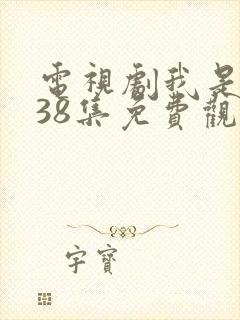 電視劇我是
38集免費觀
字寶